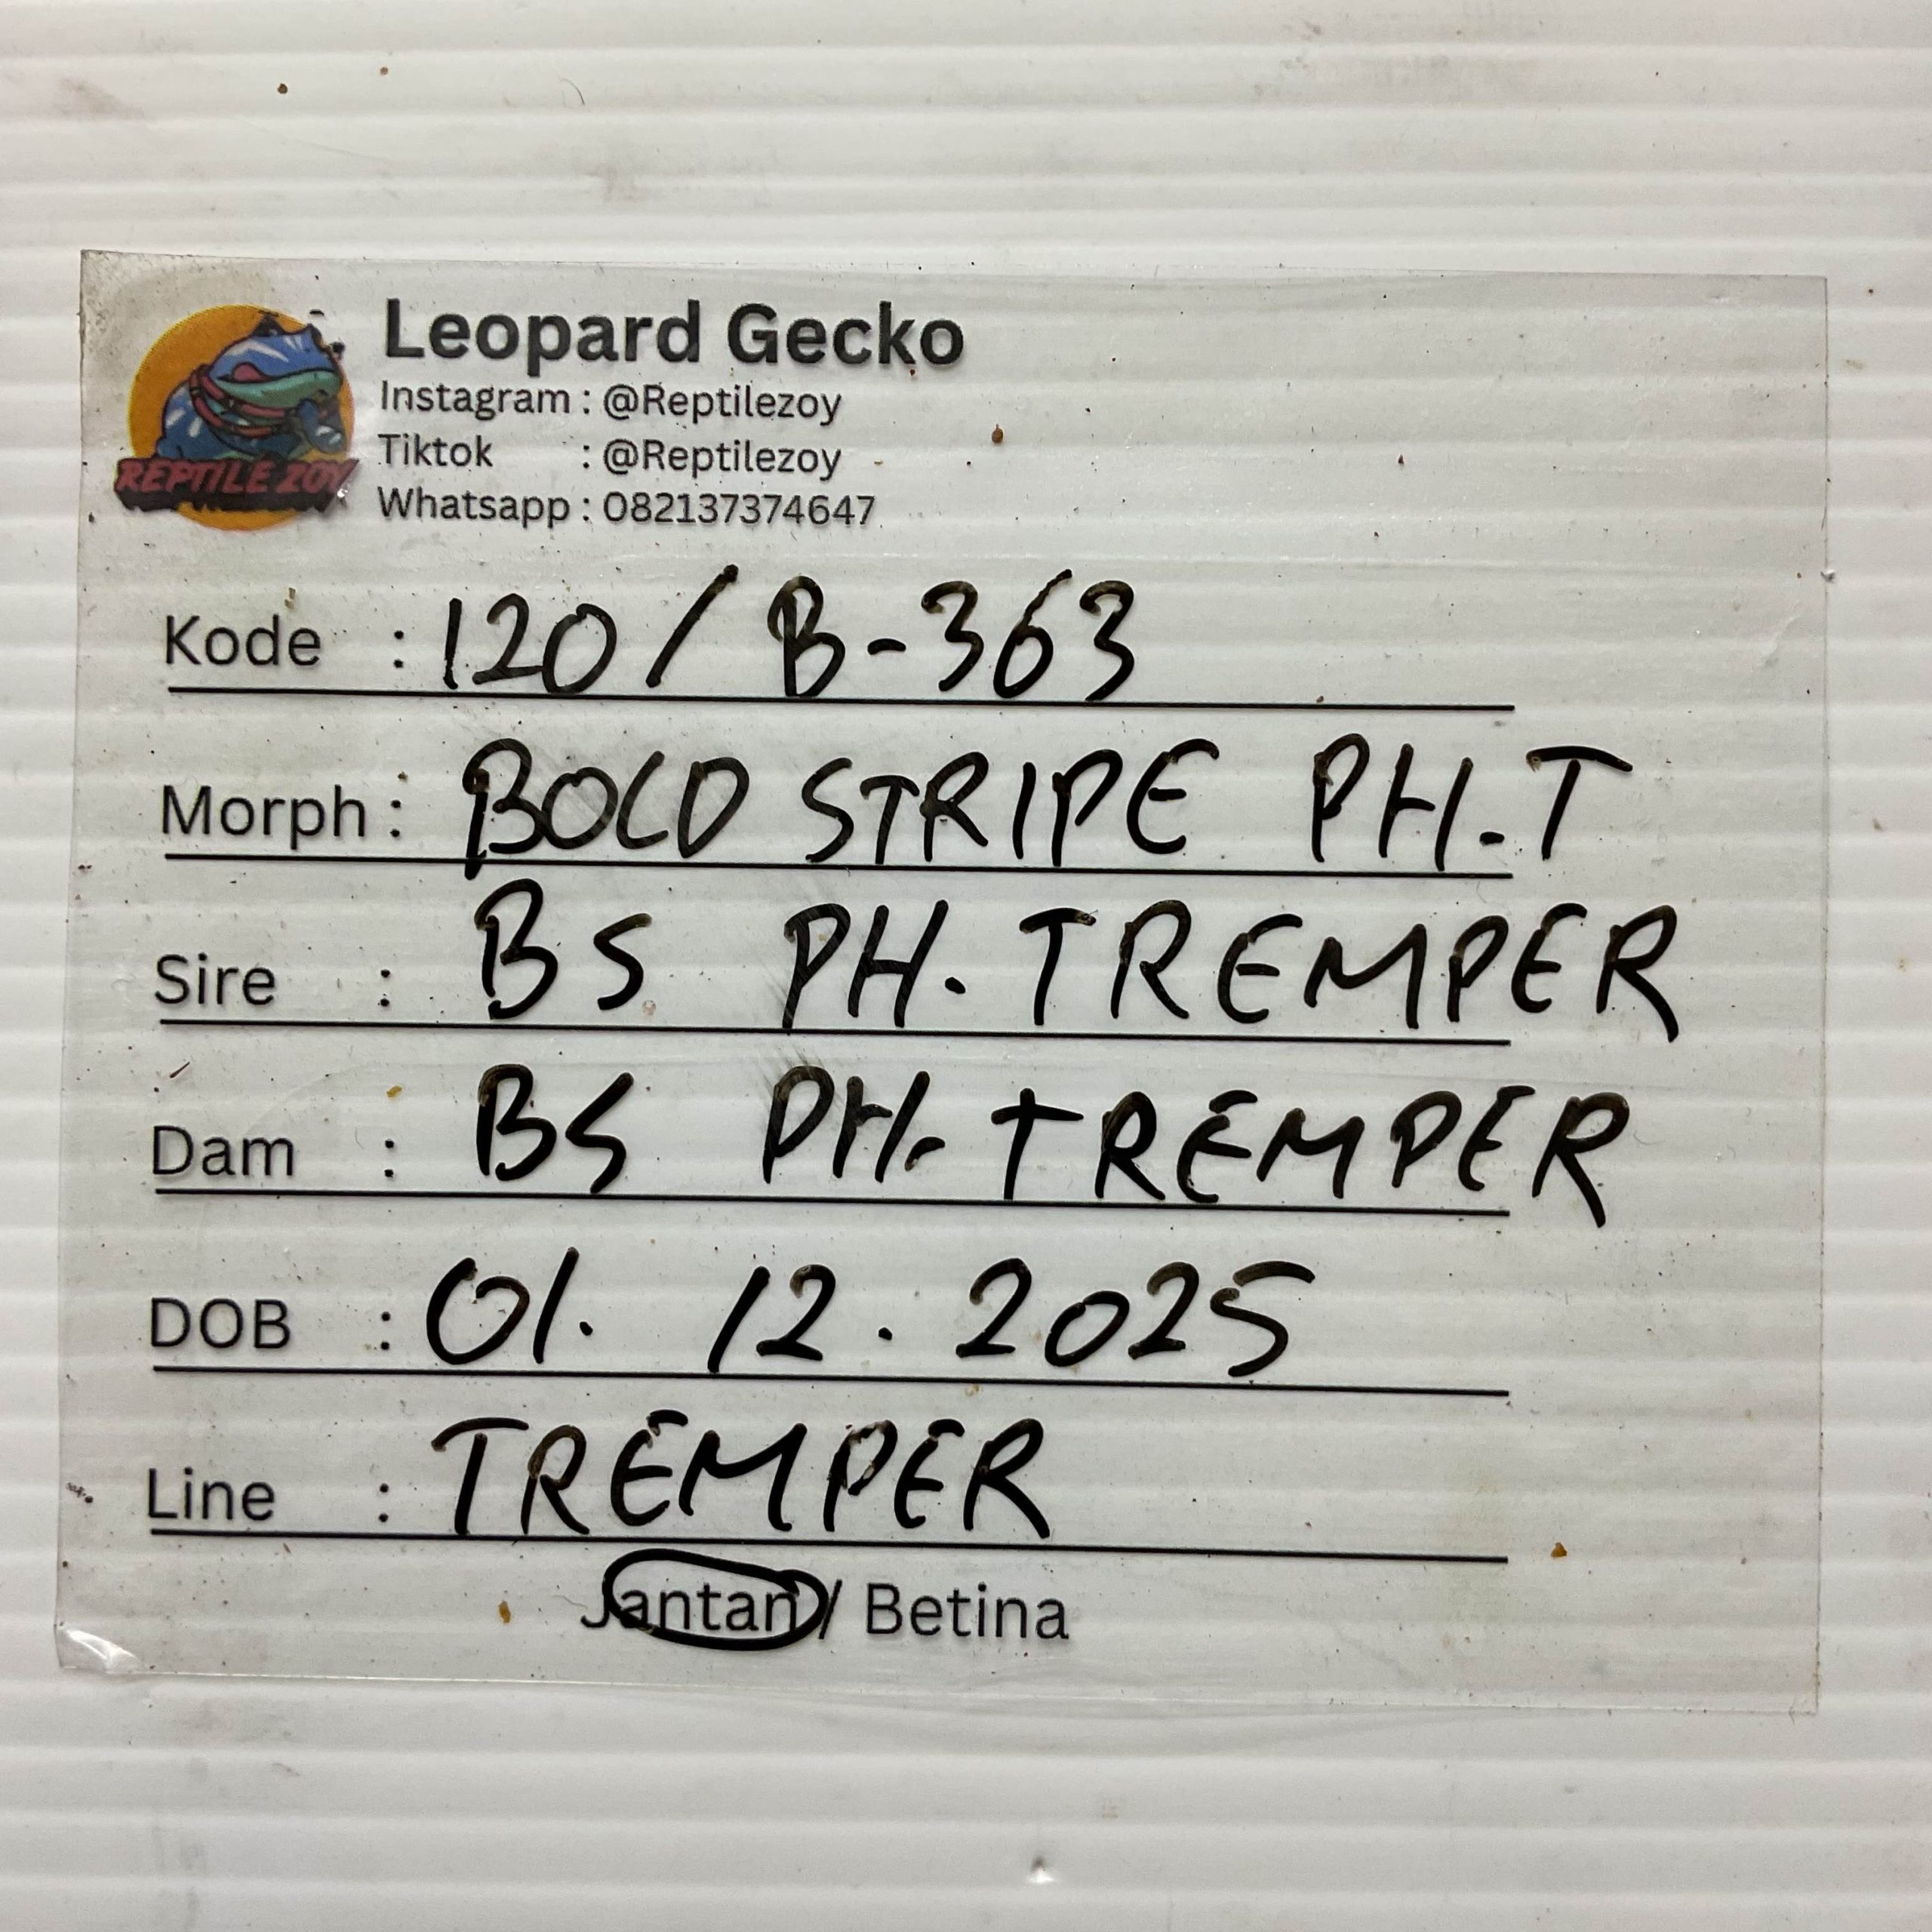 Leopard Gecko
Instagram : @Reptilezoy
Tiktok : @Reptilezoy
Whatsapp : 082137374647
REPTILE ZOY
Kode : 120 / B-363
Morph : BOLD STRIPE PH.T
Sire : BS PH. TREMPER
Dam : BS PH. TREMPER
DOB : 01. 12. 2025
Line : TREMPER
Jantan / Betina